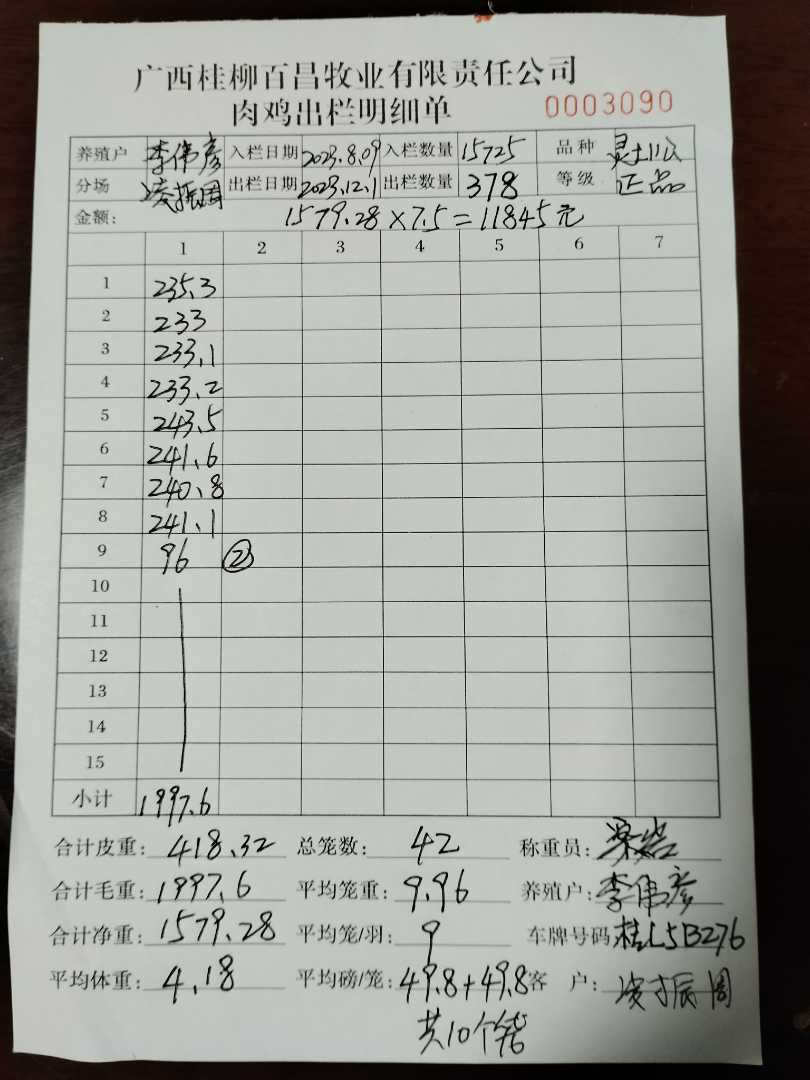 广西桂柳百昌牧业有限责任公司
肉鸡出栏明细单 0003090
养殖户 李伟彦 入栏日期 2023.8.09 入栏数量 15725 品种 灵土11公
分场 凌振周 出栏日期 2023.12.1 出栏数量 378 等级 正品
金额: 1579.28×7.5=11845元
1 2 3 4 5 6 7
1 235.3
2 233
3 233.1
4 233.2
5 243.5
6 241.6
7 240.8
8 241.1
9 96 ②
10
11
12
13
14
15
小计 1997.6
合计皮重: 418.32 总笼数: 42 称重员: 梁岩
合计毛重: 1997.6 平均笼重: 9.96 养殖户: 李伟彦
合计净重: 1579.28 平均笼/羽: 9 车牌号码: 桂L5B276
平均体重: 4.18 平均磅/笼: 49.8+49.8 客 户: 凌振周
共10个